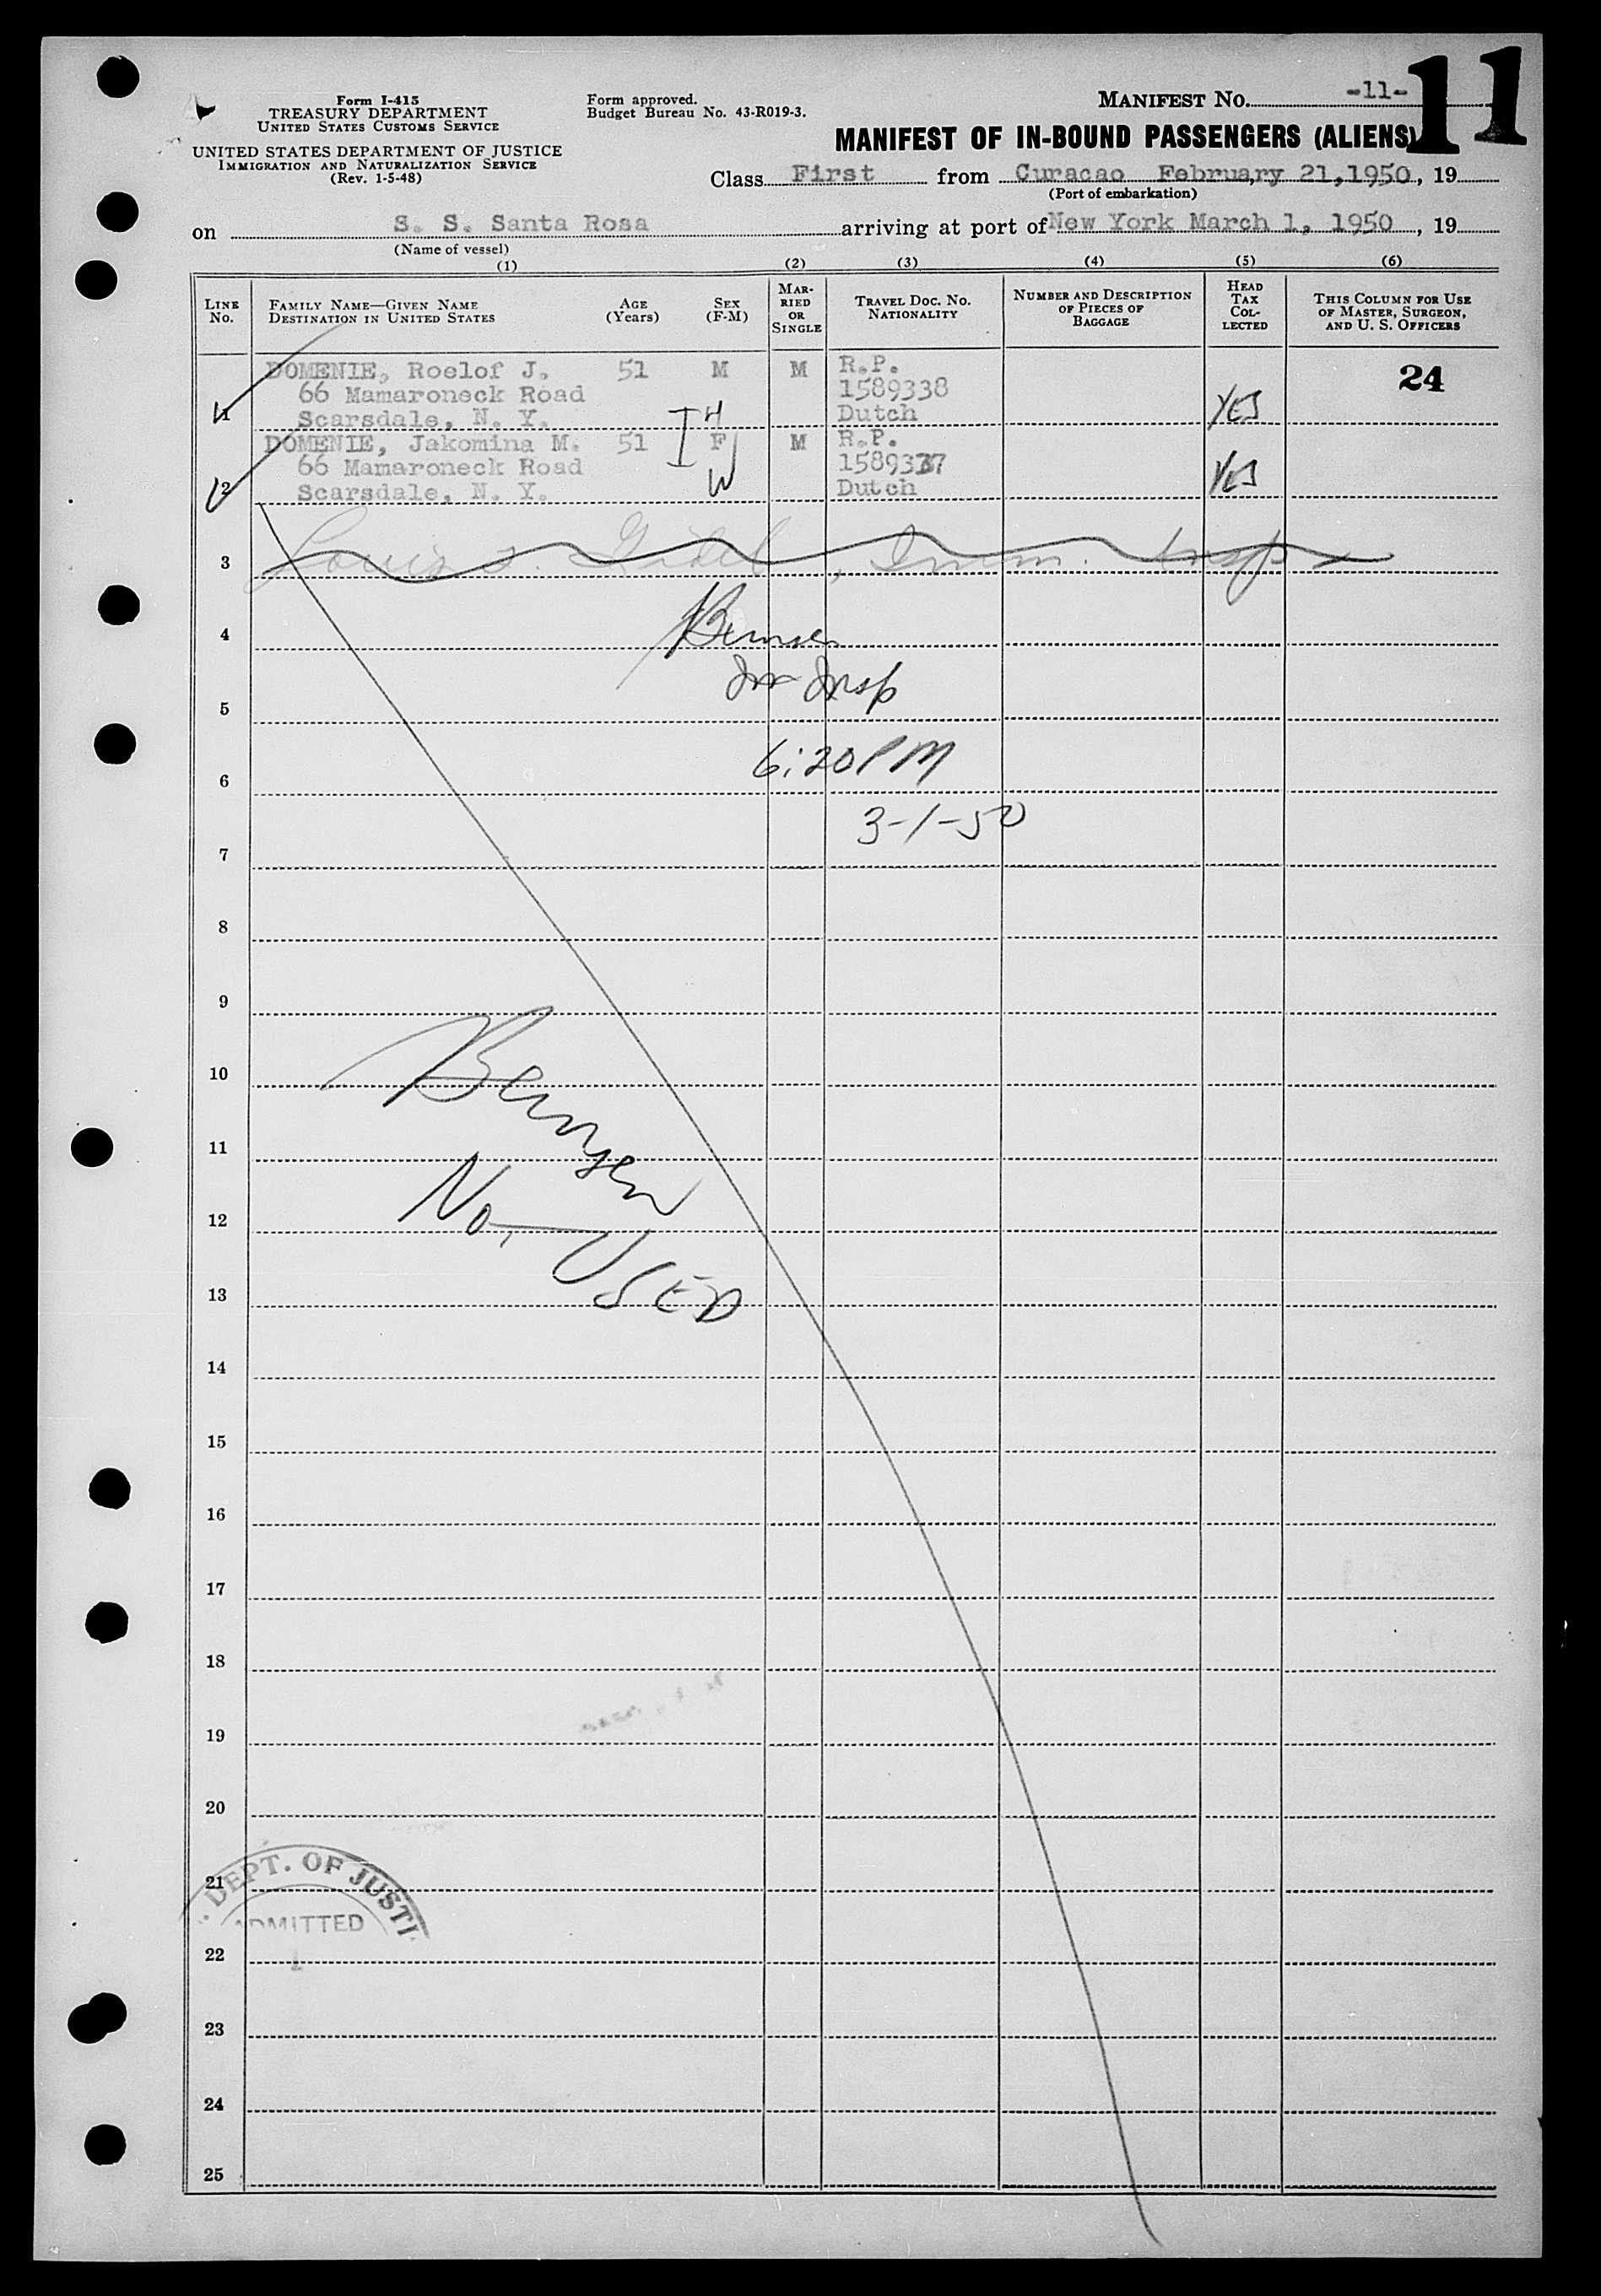 Form I-415
TREASURY DEPARTMENT
UNITED STATES CUSTOMS SERVICE
UNITED STATES DEPARTMENT OF JUSTICE
IMMIGRATION AND NATURALIZATION SERVICE
(Rev. 1-5-48)
Form approved.
Budget Bureau No. 43-R019-3.
MANIFEST No. -11-
11
MANIFEST OF IN-BOUND PASSENGERS (ALIENS)
Class First from Curacao February 21,1950, 19
(Port of embarkation)
on S. S. Santa Rosa arriving at port of New York March 1, 1950, 19
(Name of vessel)
(1) (2) (3) (4) (5) (6)
LINE No.
FAMILY NAME—GIVEN NAME
DESTINATION IN UNITED STATES
AGE (Years)
SEX (F-M)
MARRIED OR SINGLE
TRAVEL DOC. NO.
NATIONALITY
NUMBER AND DESCRIPTION OF PIECES OF BAGGAGE
HEAD TAX COLLECTED
THIS COLUMN FOR USE OF MASTER, SURGEON, AND U. S. OFFICERS
DOMENIE, Roelof J. 51 M M R.P. 24
66 Mamaroneck Road 1589338
1 Scarsdale, N. Y. H Dutch YES
DOMENIE, Jakomina M. 51 F M R.P.
66 Mamaroneck Road 1589337
2 Scarsdale, N. Y. W Dutch YES
3 Louis J. , Imm. Insp
4
5 Insp
6 6:20 PM
7 3-1-50
8
9
10
11
12 No.
13 USED
14
15
16
17
18
19
20
21 DEPT. OF JUSTI
ADMITTED
22
23
24
25